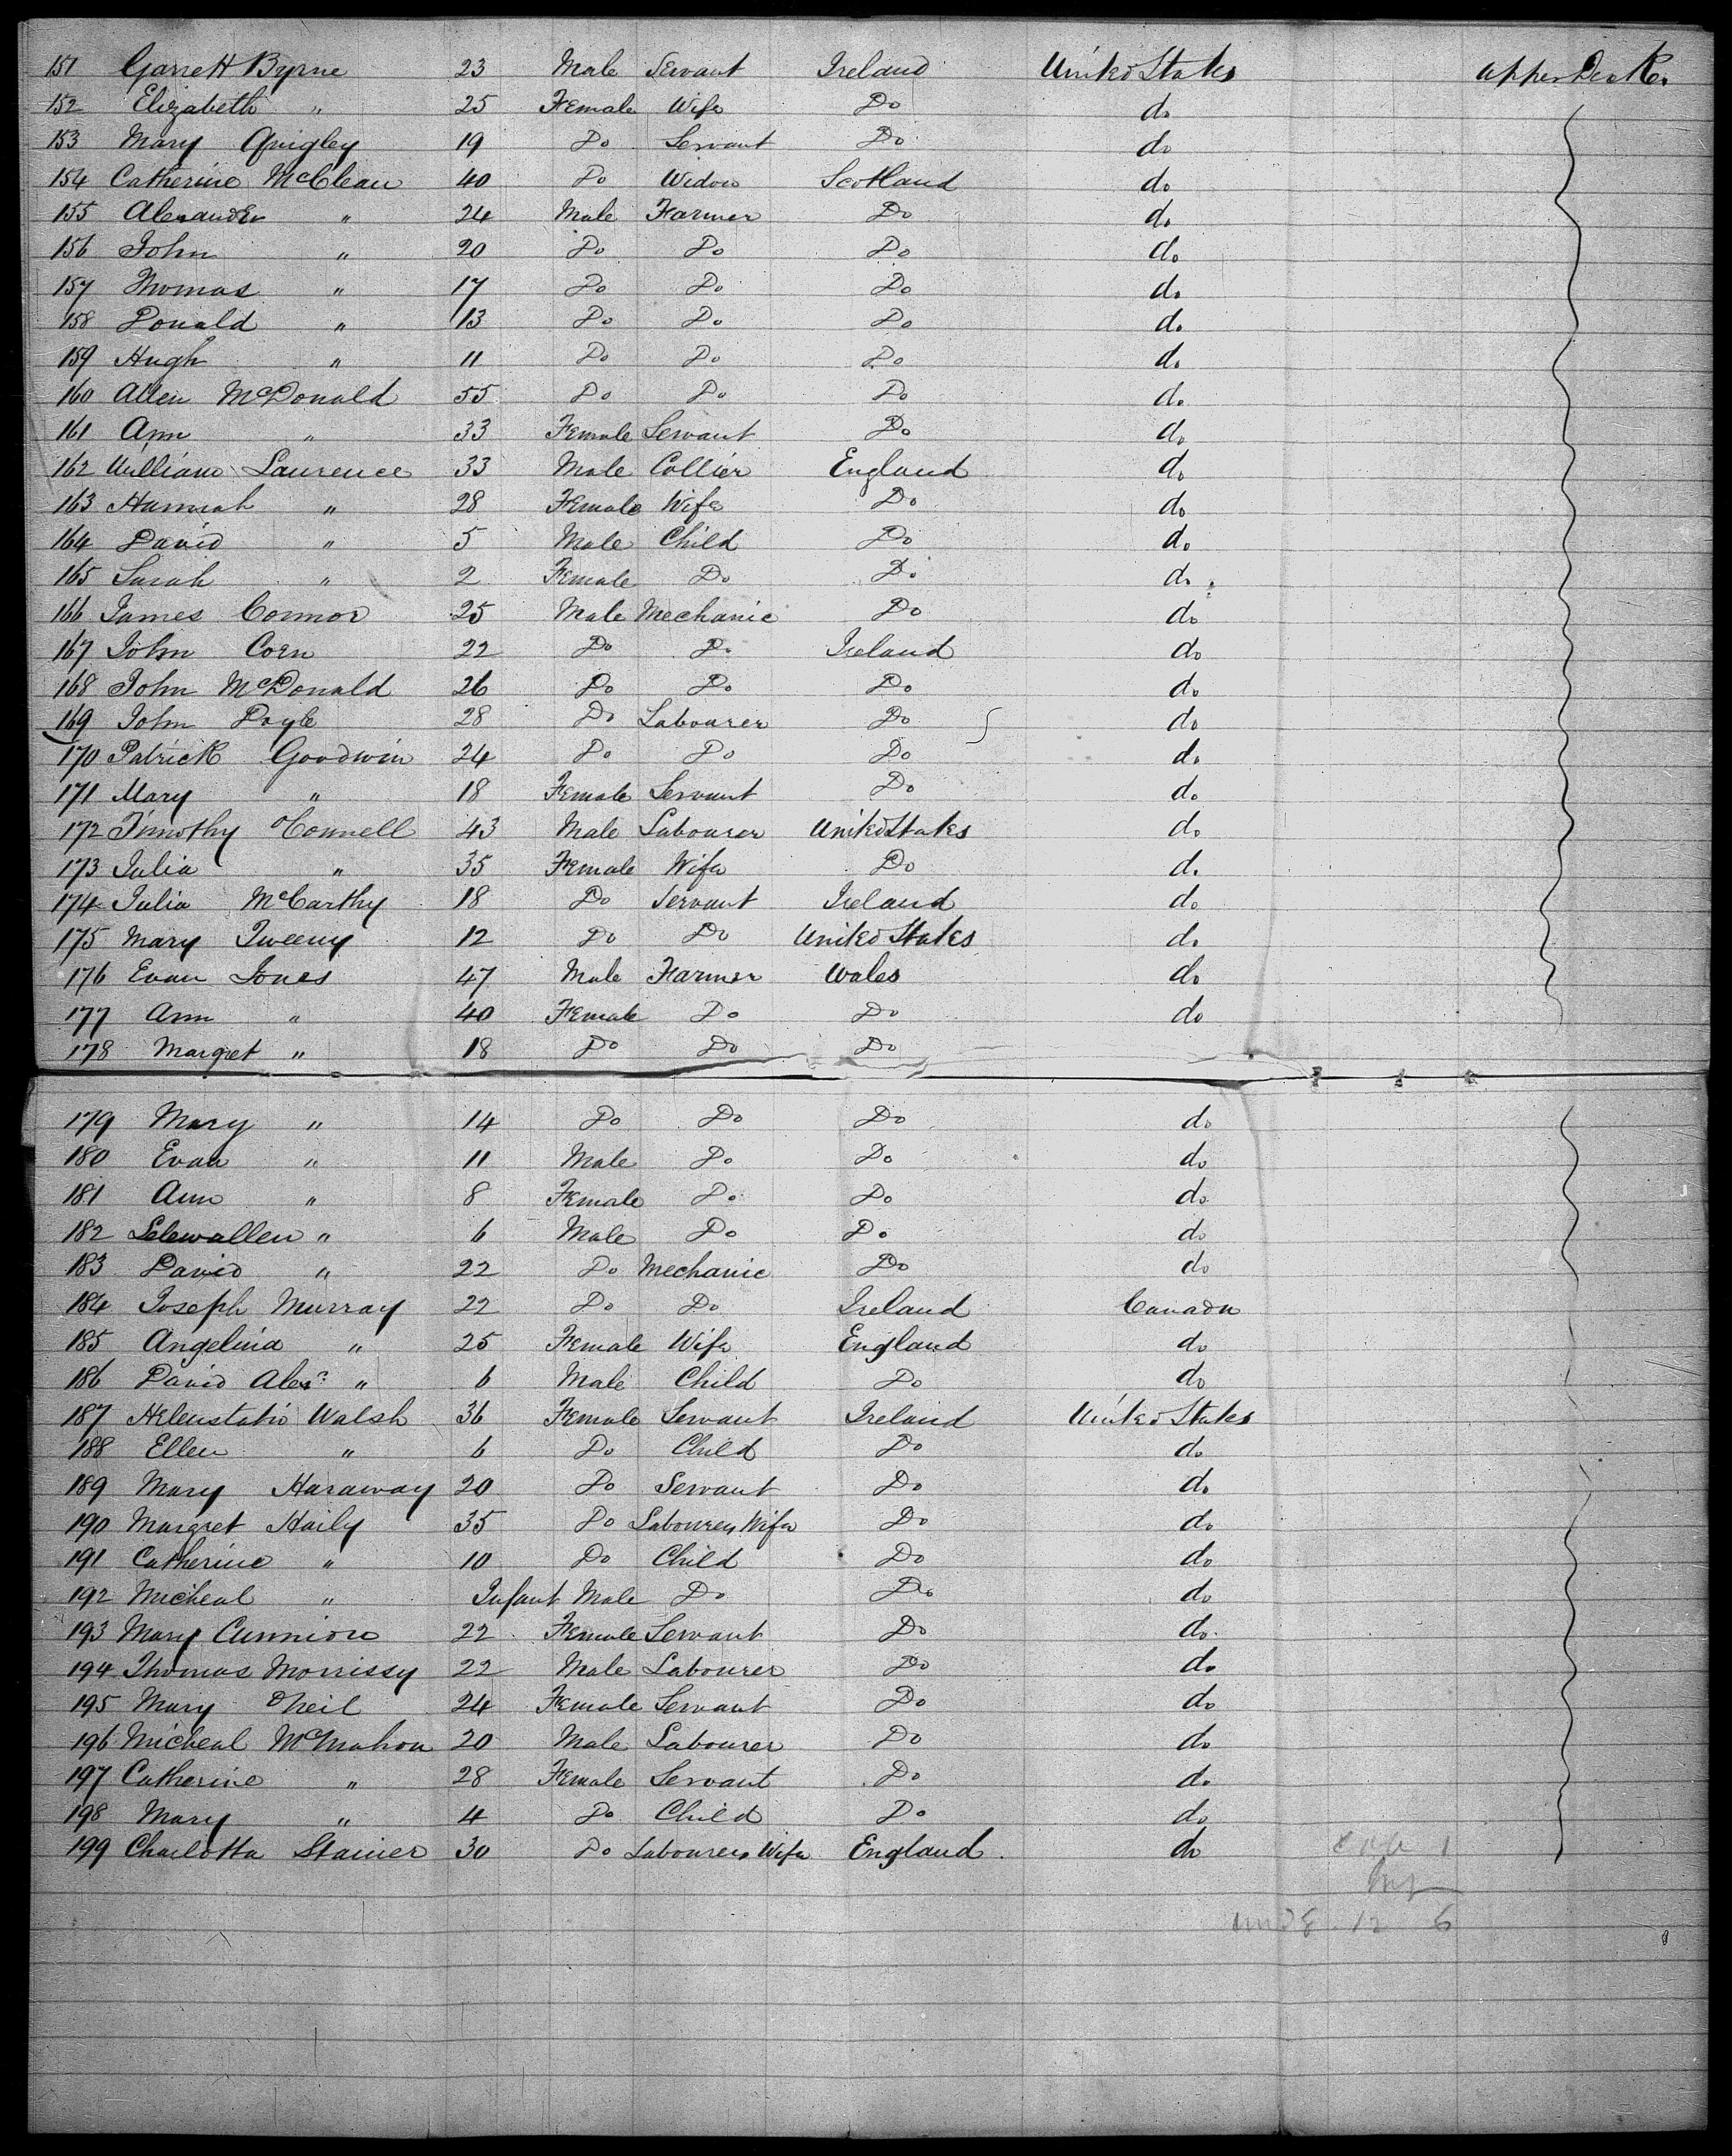 151 Garrett Byrne 23 Male Servant Ireland United States Upper Deck.
152 Elizabeth " 25 Female Wife Do do
153 Mary Quigley 19 Do Servant Do do
154 Catherine McClean 40 Do Widow Scotland do
155 Alexander " 24 Male Farmer Do do
156 John " 20 Do Do Do do
157 Thomas " 17 Do Do Do do
158 Donald " 13 Do Do Do do
159 Hugh " 11 Do Do Do do
160 Allen McDonald 55 Do Do Do do
161 Ann " 33 Female Servant Do do
162 William Laurence 33 Male Collier England do
163 Hannah " 28 Female Wife Do do
164 David " 5 Male Child Do do
165 Sarah " 2 Female Do Do do
166 James Connor 25 Male Mechanic Do do
167 John Coen 22 Do Do Ireland do
168 John McDonald 26 Do Do Do do
169 John Doyle 28 Do Labourer Do do
170 Patrick Goodwin 24 Do Do Do do
171 Mary " 18 Female Servant Do do
172 Timothy OConnell 43 Male Labourer United States do
173 Julia " 35 Female Wife Do do
174 Julia McCarthy 18 Do Servant Ireland do
175 Mary Tweeny 12 Do Do United States do
176 Evan Jones 47 Male Farmer Wales do
177 Ann " 40 Female Do Do do
178 Margret " 18 Do Do Do
179 Mary " 14 Do Do Do do
180 Evan " 11 Male Do Do do
181 Ann " 8 Female Do Do do
182 Lelewallen " 6 Male Do Do do
183 David " 22 Do Mechanic Do do
184 Joseph Murray 22 Do Do Ireland Canada
185 Angelina " 25 Female Wife England do
186 David Alexr " 6 Male Child Do do
187 Walsh 36 Female Servant Ireland United States
188 Ellen " 6 Do Child Do do
189 Mary Haraway 20 Do Servant Do do
190 Margret Haily 35 Do Labourers Wife Do do
191 Catherine " 10 Do Child Do do
192 Micheal " Infant Male Do Do do
193 Mary Cunnion 22 Female Servant Do do
194 Thomas Morrissy 22 Male Labourer Do do
195 Mary ONeil 24 Female Servant Do do
196 Micheal McMahon 20 Male Labourer Do do
197 Catherine " 28 Female Servant Do do
198 Mary " 4 Do Child Do do
199 Charlotta Stainer 30 Do Labourers Wife England do